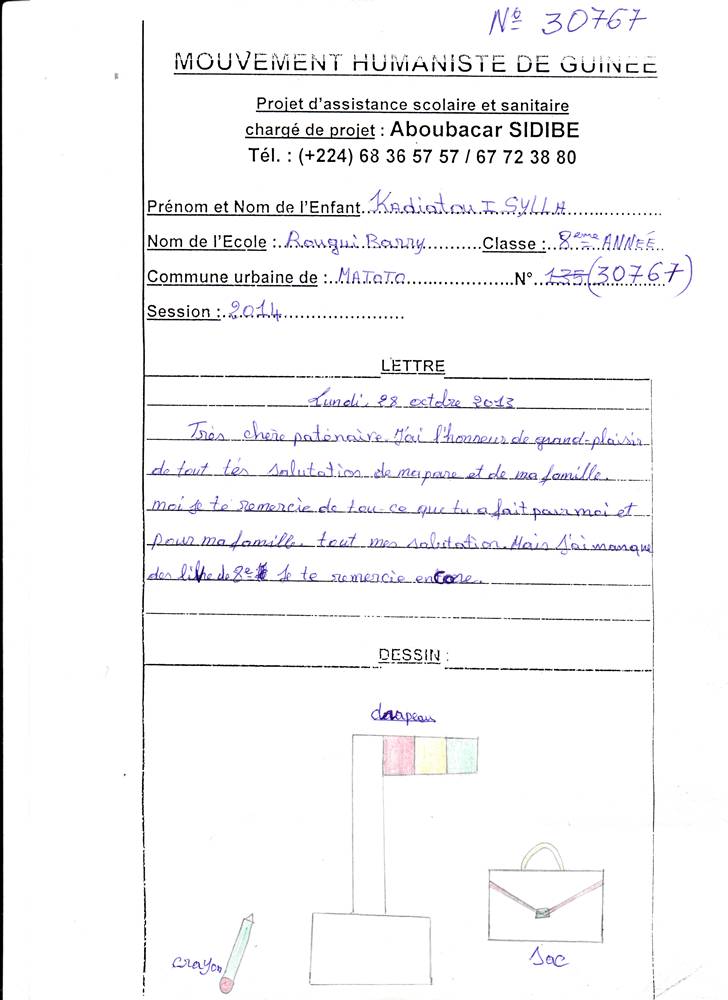 N° 30767
MOUVEMENT HUMANISTE DE GUINEE
Projet d'assistance scolaire et sanitaire
chargé de projet : Aboubacar SIDIBE
Tél. : (+224) 68 36 57 57 / 67 72 38 80
Prénom et Nom de l'Enfant..Kadiatou I SYLLA
Nom de l'Ecole :..Rougui Barry...........Classe :..8eme ANNEE..
Commune urbaine de :..MATOTO......................N°...135(30767)
Session :..2014......................
LETTRE
Lundi, 28 octobre 2013
Très chère patenaire. J'ai l'honneur de grand-plaisir
de tout tés salutation de ma pare et de ma famille.
moi je te remercie de tou-ce que tu a fait pour moi et
pour ma famille. tout mes salutation. Mais j'ai manque
des de 8e je te remercie encore.
DESSIN :
drapeau
crayon
Sac